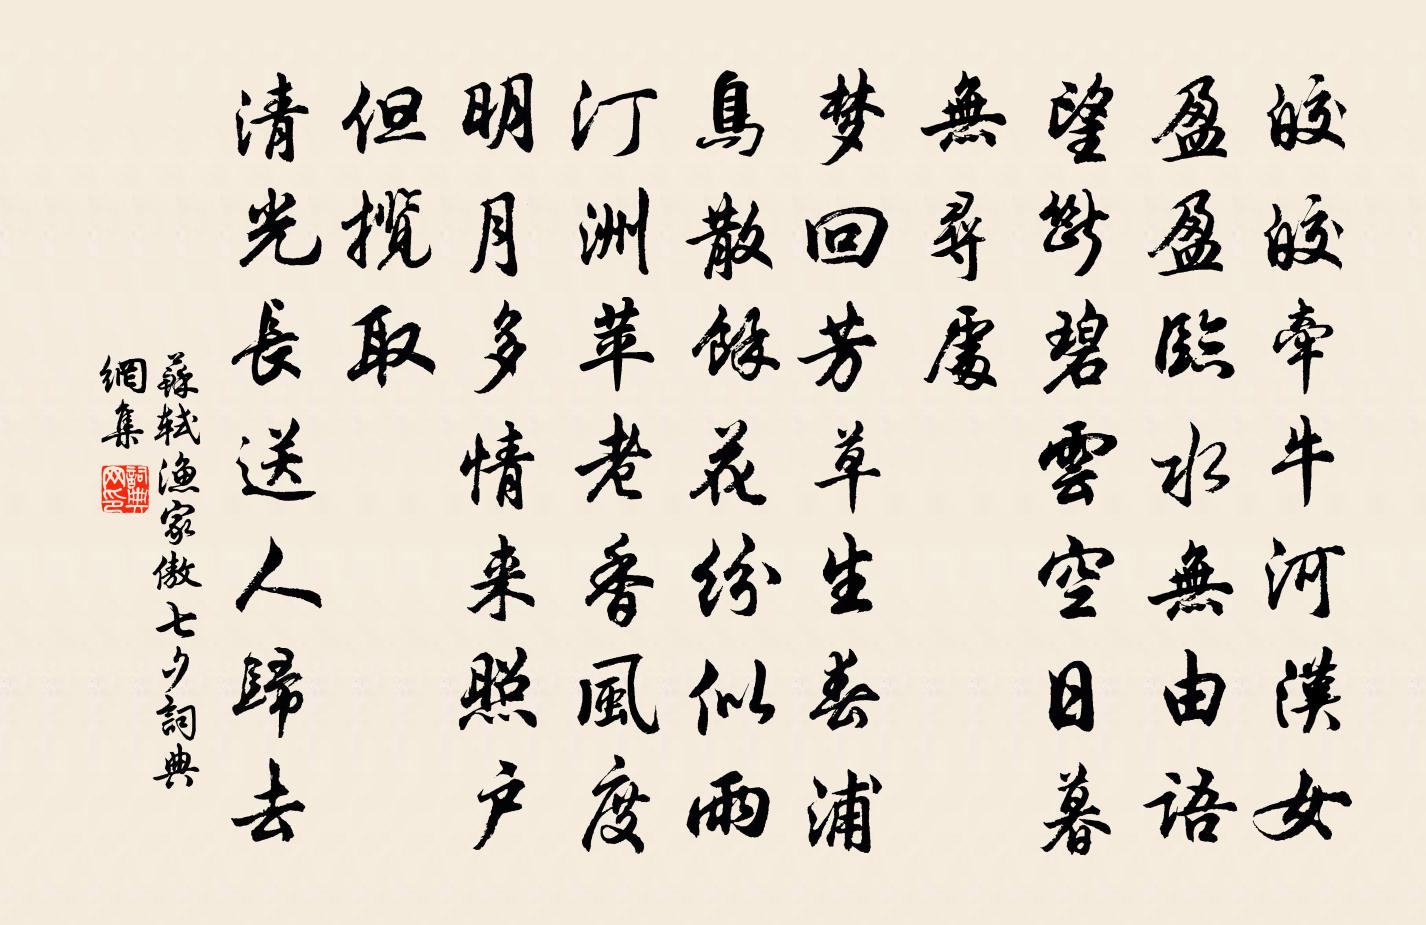 皎皎牽牛河漢女
盈盈臨水無由語
望斷碧雲空日暮
無尋處
梦回芳草生春浦
鳥散餘花紛似雨
汀洲苹老香風度
明月多情来照户
但攬取
清光長送人歸去
蘇軾漁家傲七夕詞典
網集
詞典
网印